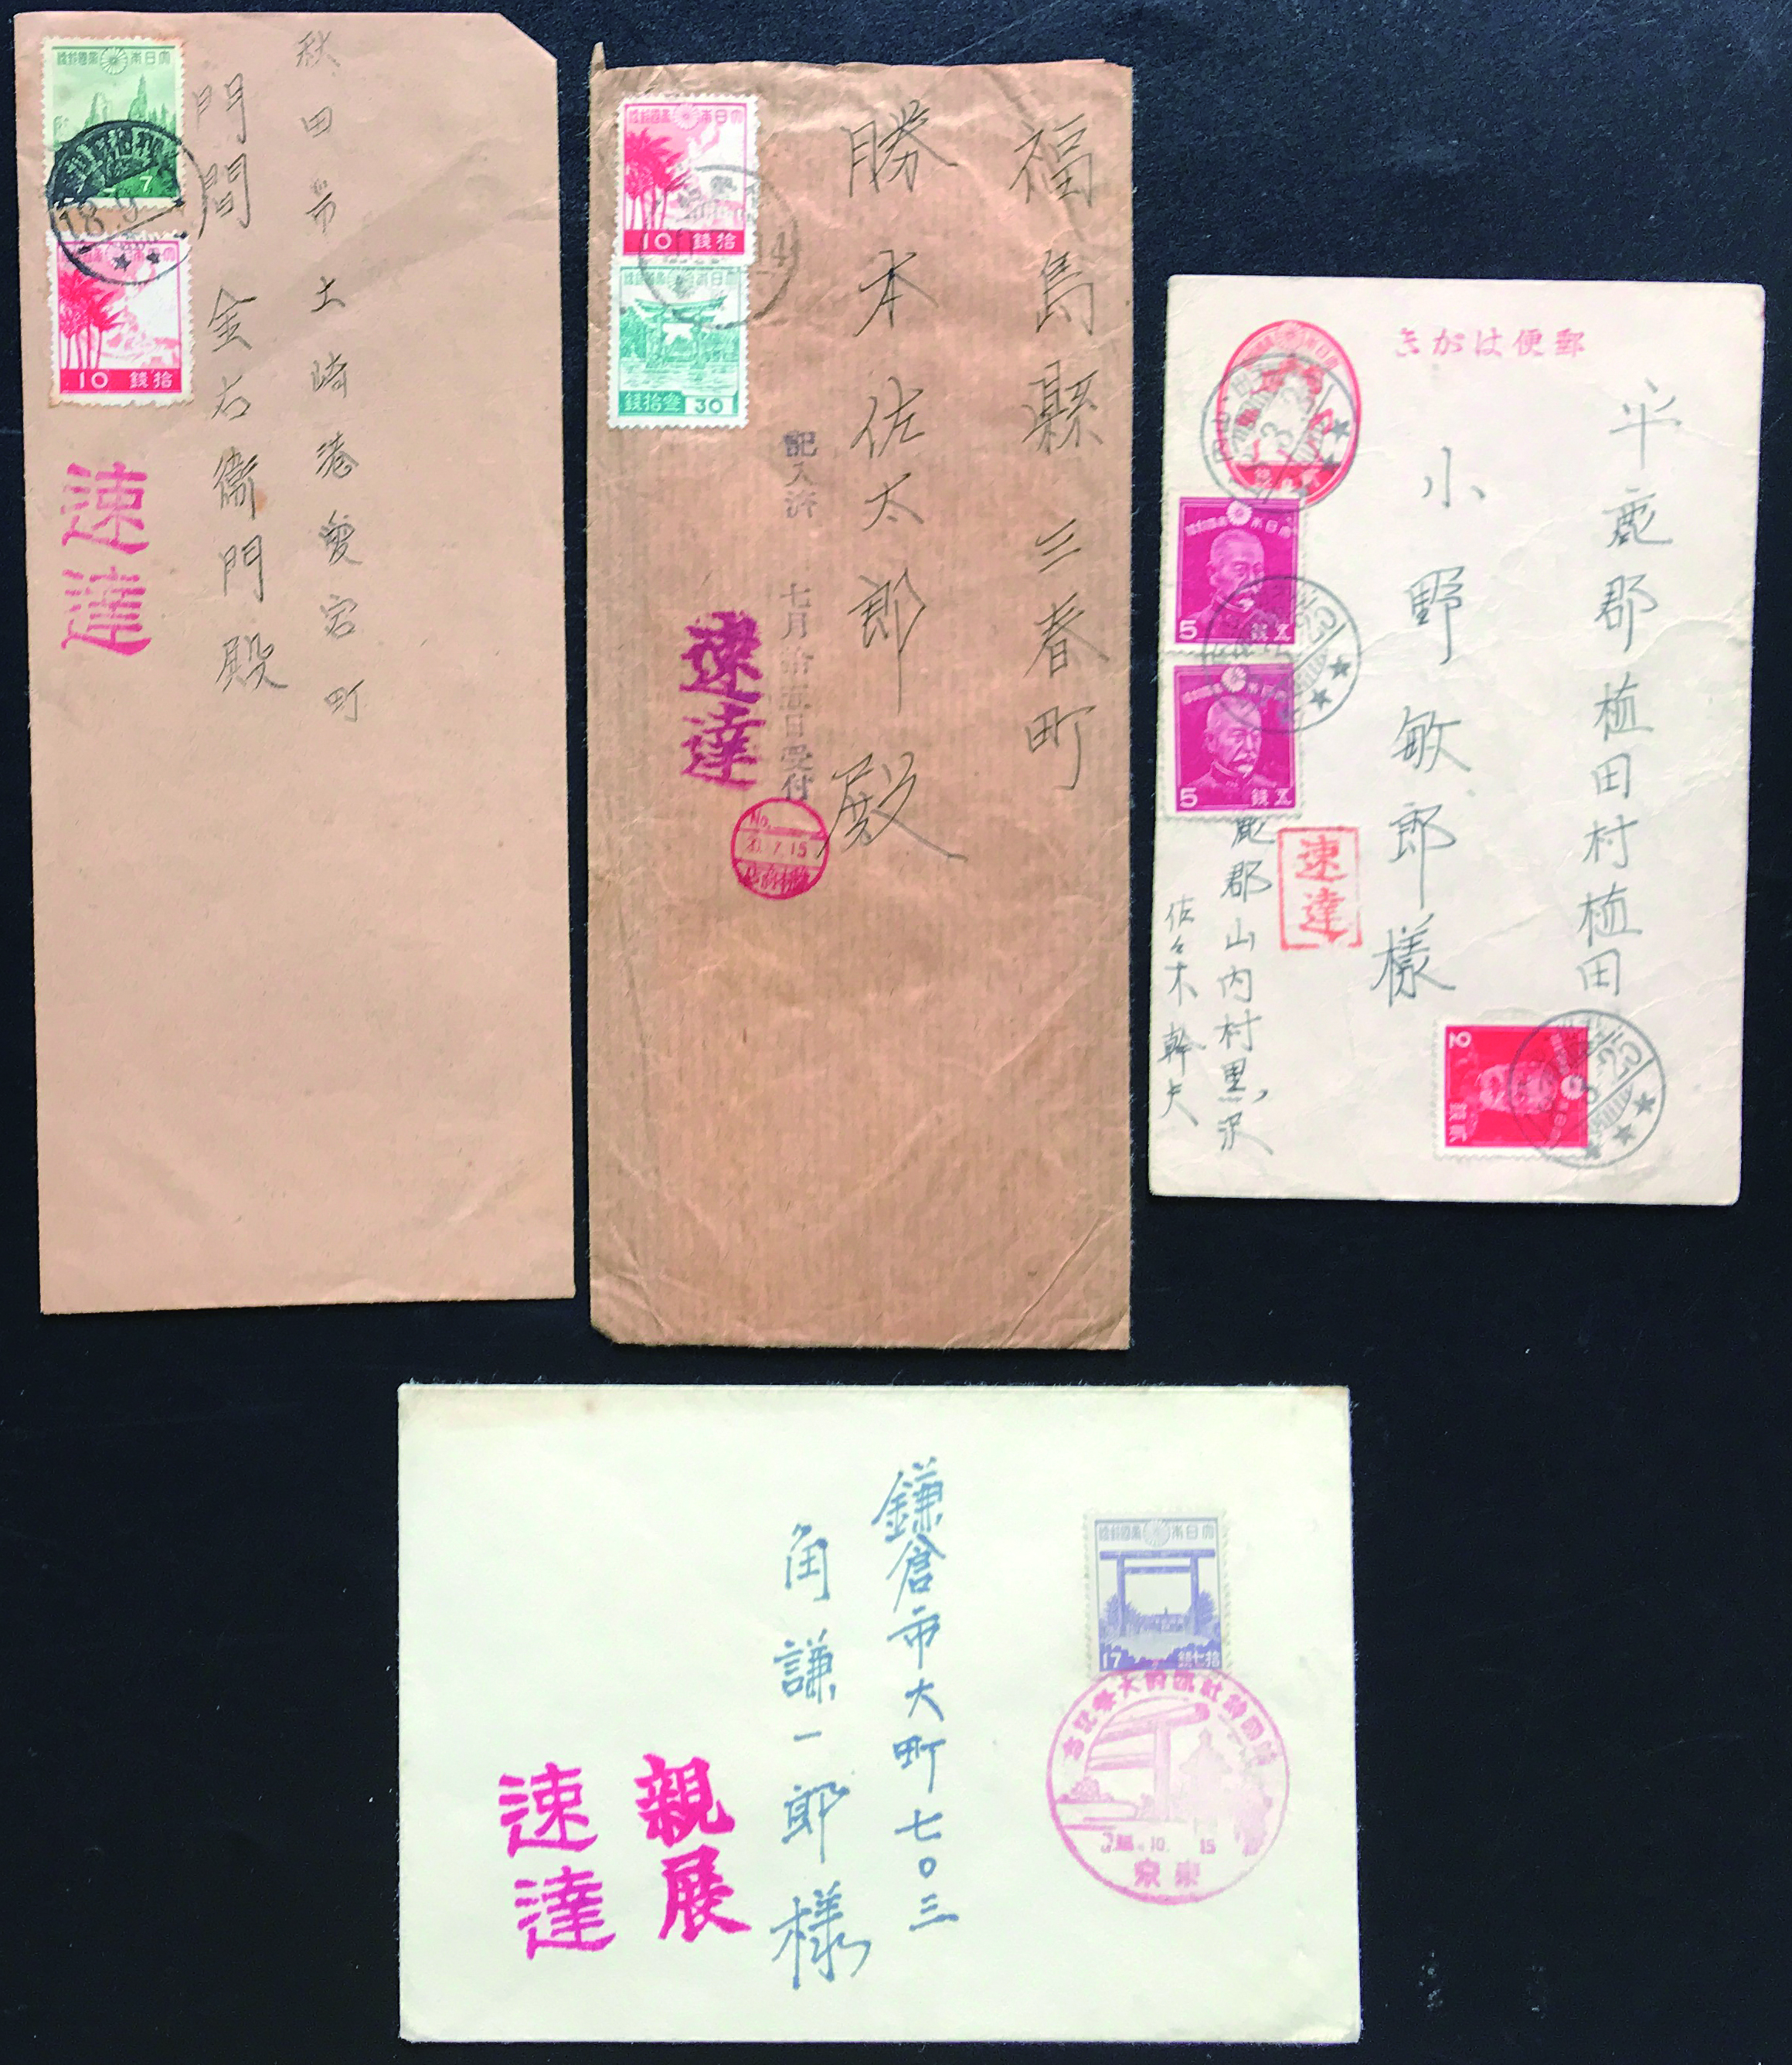 大日本帝國郵便
7
18.9
大日本帝國郵便
10 拾錢
秋田市土崎港愛宕町
門間金右衞門殿
速達
大日本帝國郵便
10 拾錢
大日本帝國郵便
叁拾錢 30
福島縣三春町
勝本佐太郎殿
記入済 七月拾五日受付
速達
No.
7.15
郵便はがき
大日本帝國郵便
5 五錢
大日本帝國郵便
5 五錢
平鹿郡植田村植田
小野敏郎様
速達
鹿郡山内村黒沢
佐々木幹夫
2 貳錢
25
大日本帝國郵便
17 拾七錢
靖國神社臨時大祭記念
10. 15
東京
鎌倉市大町七〇三
角謙一郎様
親展
速達